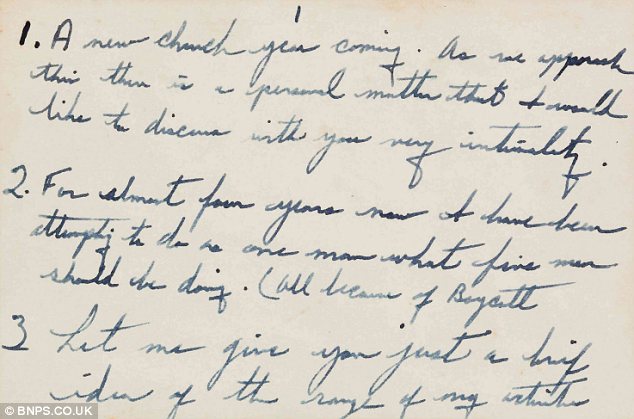 1
1. A new church year coming. As we approach
this there is a personal matter that I would
like to discuss with you very intimately.
2. For almost four years now I have been
attempting to do as one man what five men
should be doing. (All because of Boycott
3 Let me give you just a brief
idea of the range of my activities
© BNPS.CO.UK